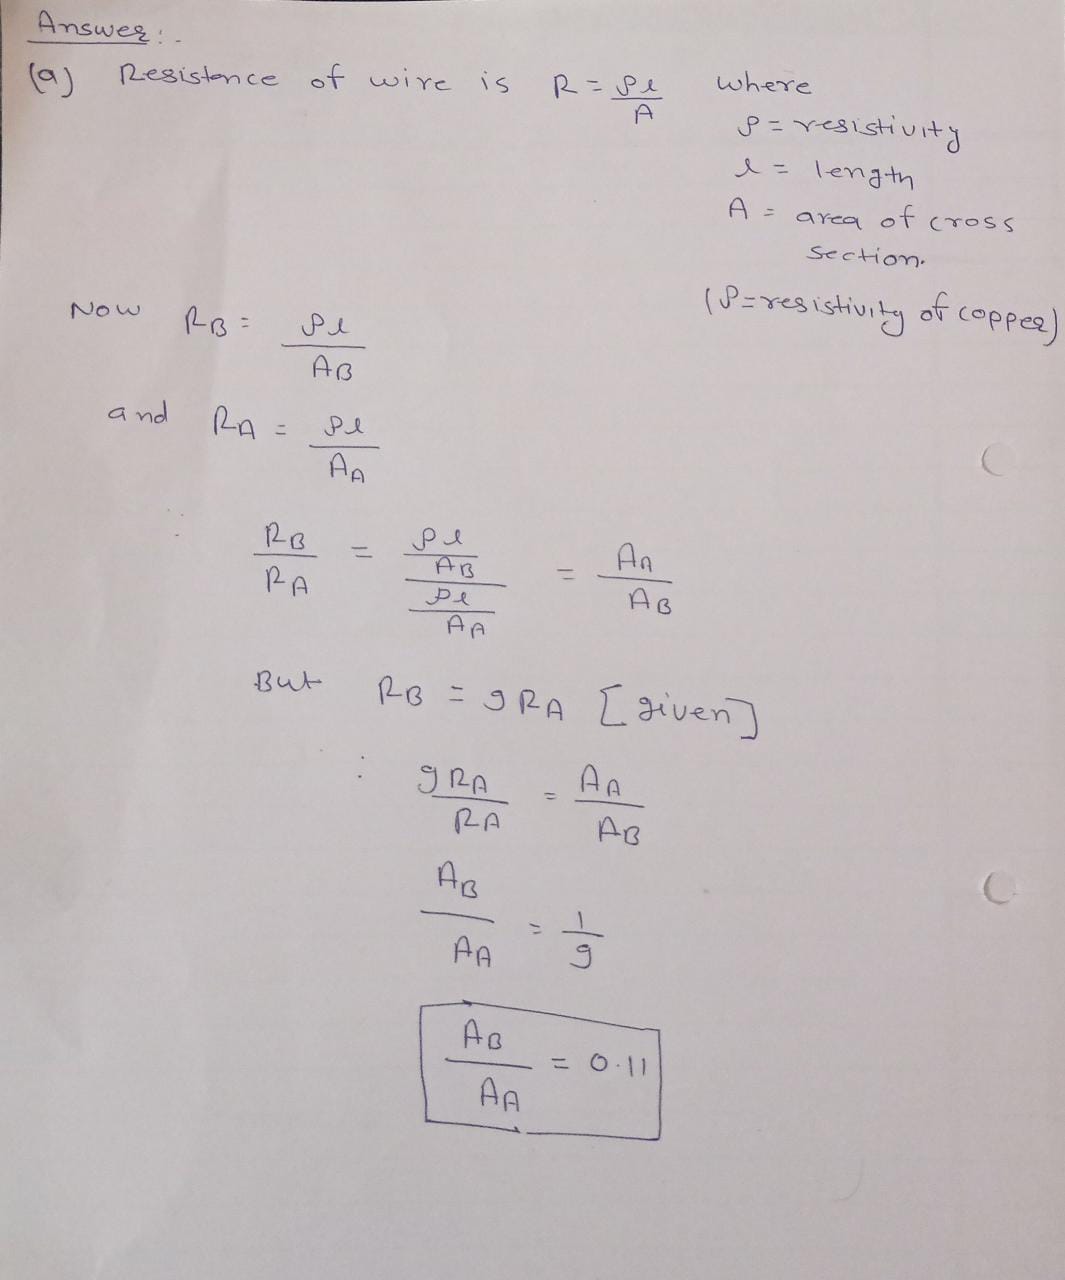 Answer :-
(a) Resistance of wire is R = ρl/A where
ρ = resistivity
l = length
A = area of cross
section.
(ρ = resistivity of copper)
Now R_B = ρl/A_B
and R_A = ρl/A_A
R_B/R_A = (ρl/A_B)/(ρl/A_A) = A_A/A_B
But R_B = 9R_A [given]
: 9R_A/R_A = A_A/A_B
A_B/A_A = 1/9
A_B/A_A = 0.11